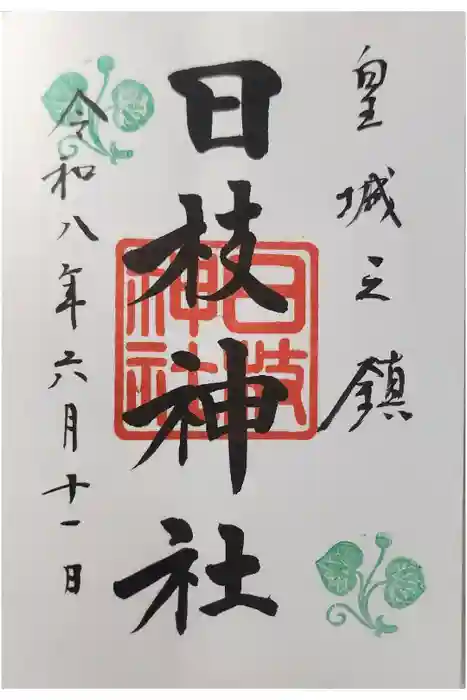 皇城之鎮
日枝神社
日枝神社
令和八年六月十一日